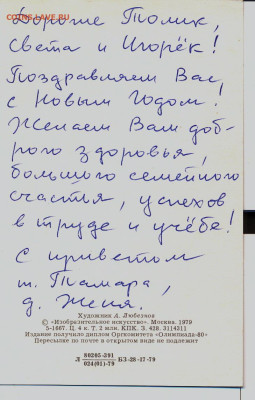 COINSS.RU
Дорогие Толик,
Света и Игорёк!
Поздравляем Вас
с Новым Годом!
Желаем Вам доб-
рого здоровья,
большого семейного
счастья, успехов
в труде и учёбе!
С приветом
т. Тамара,
д. Женя.
Художник А. Любезнов
© «Изобразительное искусство». Москва. 1979
5-1667. Ц. 4 к. Т. 2 млн. КПК. З. 428. 3114311
Издание получило диплом Оргкомитета «Олимпиада-80»
Пересылке по почте в открытом виде не подлежит
Л 80205-391 БЗ-28-17-79
024(01)-79